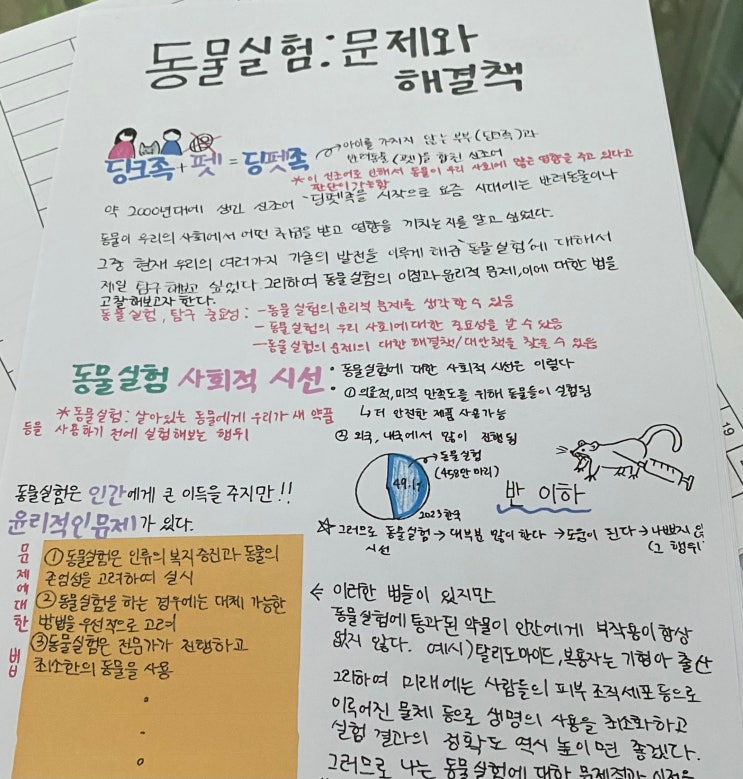 동물실험: 문제와
해결책
딩크족+펫=딩펫족
아이를 가지지 않는 부부(딩크족)과
반려동물(펫)을 합친 신조어
*이 신조어로 인해서 동물이 우리 사회에 많은 영향을 주고 있다고
판단이 가능함
약 2000년대에 생긴 신조어 '딩펫족'을 시작으로 요즘 시대에는 반려동물이나
동물이 우리의 사회에서 어떤 취급을 받고 영향을 끼치는지를 알고 싶었다.
그중 현재 우리의 여러가지 기술의 발전을 이루게 해준 '동물실험'에 대해서
제일 탐구해보고 싶었다 그리하여 동물실험의 이점과 윤리적 문제, 이에 대한 법을
고찰해보고자 한다.
동물실험, 탐구 중요성: -동물실험의 윤리적 문제를 생각할 수 있음
- 동물실험의 우리 사회에 대한 중요성을 알 수 있음
-동물실험의 문제의 대한 해결책/대안책을 찾을 수 있음
동물실험 사회적 시선
*동물실험: 살아있는 동물에게 우리가 새 약품
등을 사용하기 전에 실험해보는 행위
• 동물실험에 대한 사회적 시선은 이렇다
• ① 의료적, 미적 만족도를 위해 동물들이 실험됨
↳ 더 안전한 제품 사용가능
② 외국, 내국에서 많이 진행됨
동물실험
(458만 마리)
49.1%
2023한국
반 이하
☆ 그러므로 동물실험 → 대부분 많이한다 → 도움이 된다 → 나쁘지
시선
(그 행위
동물실험은 인간에게 큰 이득을 주지만!!
윤리적인 문제가 있다.
문제에 대한 법
① 동물실험은 인류의 복지 증진과 동물의
존엄성을 고려하여 실시
② 동물실험을 하는 경우에는 대체 가능한
방법을 우선적으로 고려
③ 동물실험은 전문가가 진행하고
최소한의 동물을 사용
← 이러한 법들이 있지만
동물실험에 통과된 약물이 인간에게 부작용이 항상
없지 않다. 예시) 탈리도마이드, 복용자는 기형아 출산
그리하여 미래에는 사람들의 피부 조직세포 등으로
이루어진 물체 등으로 생명의 사용을 최소화하고
실험 결과의 정확도 역시 높이면 좋겠다.
그러므로 나는 동물실험에 대한 문제점과
19